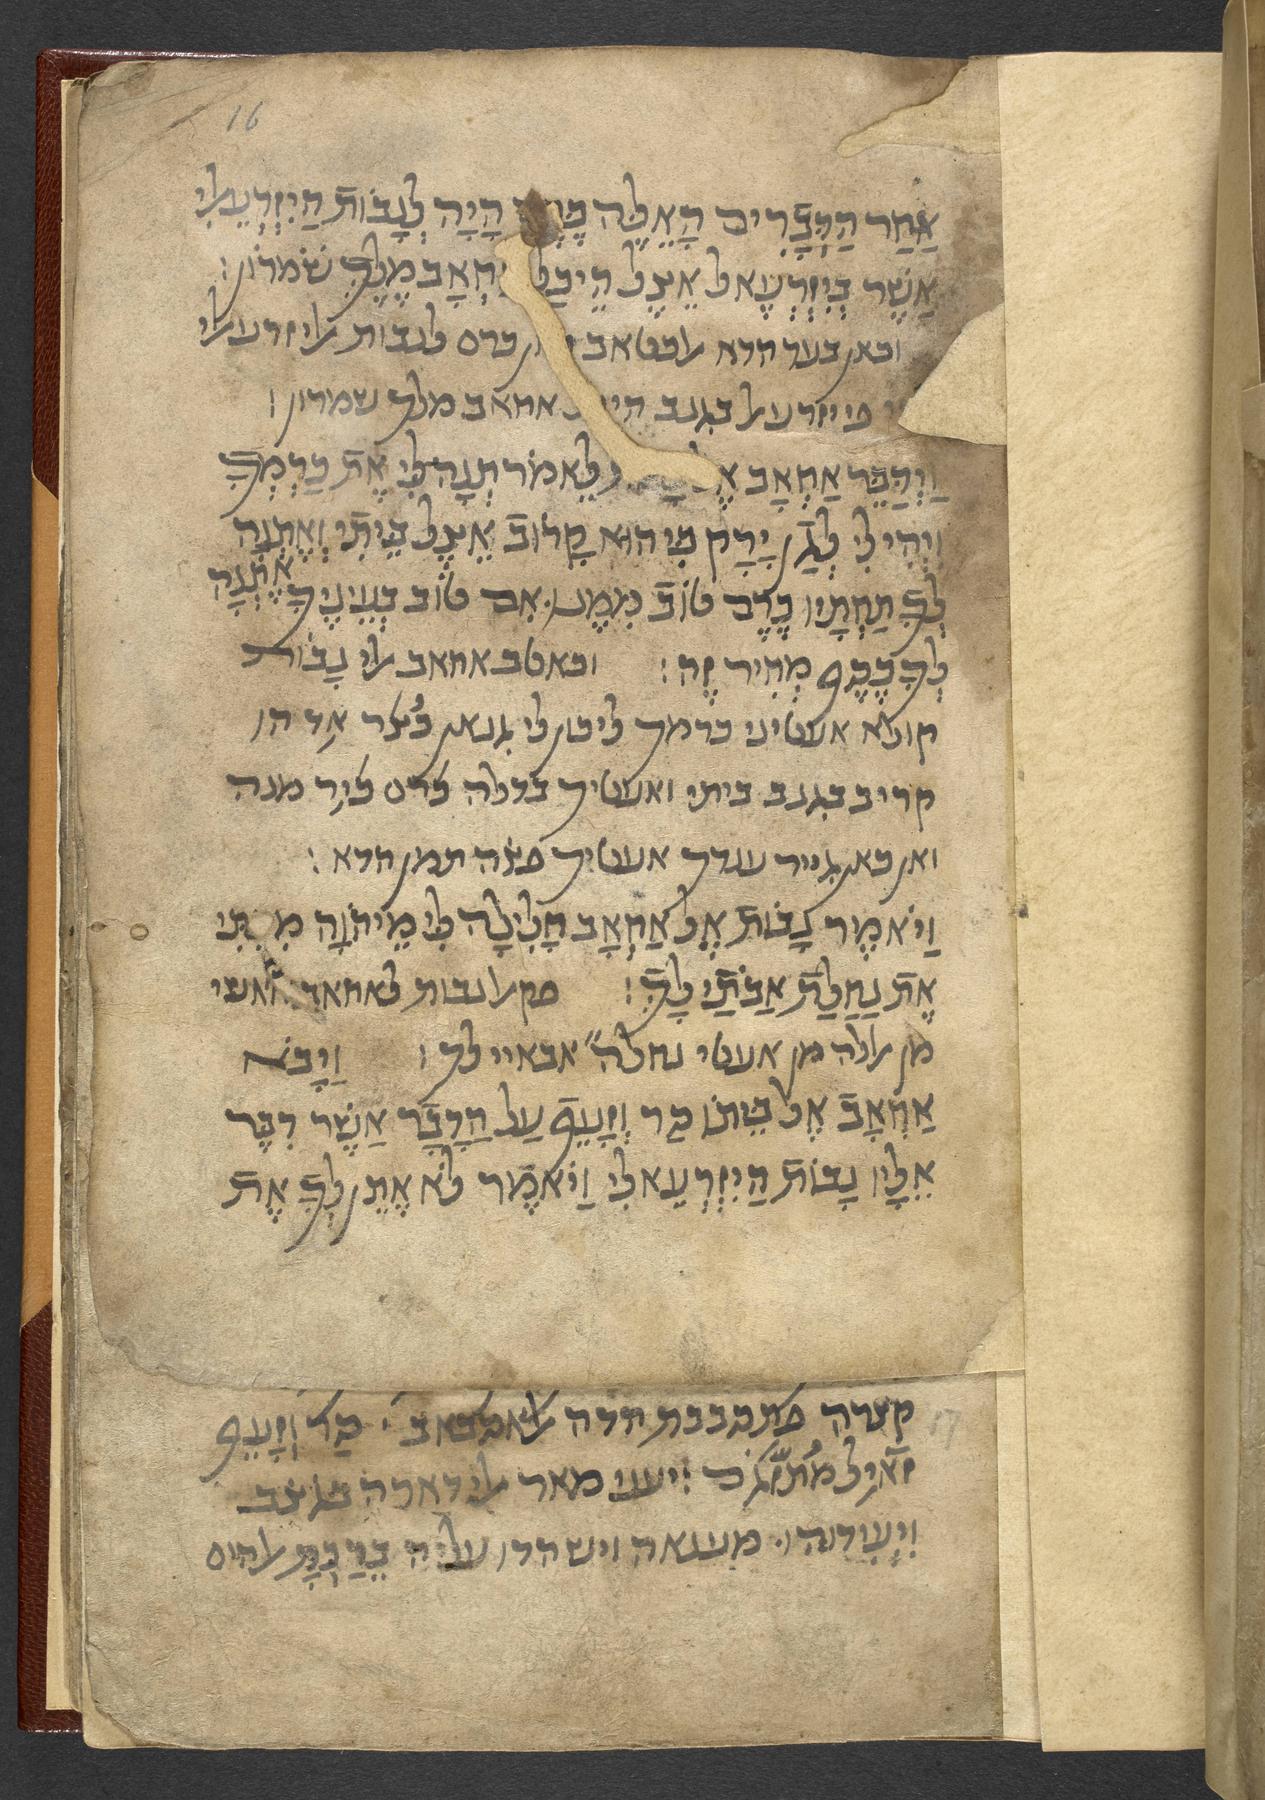 16
אַחַר הַדְּבָרִים הָאֵלֶּה הָיָה לְנָבוֹת הַיִּזְרְעֵלִי
אֲשֶׁר בְּיִזְרְעֶאל אֵצֶל הֵיכַל אַחְאָב מֶלֶךְ שֹׁמְרוֹן׃
וכאן בעד הדא כרם לנבות אליזרעאלי
פי יזרעאל בגנב אחאב מלך שמרון׃
וַיְדַבֵּר אַחְאָב לֵאמֹר תְּנָה לִּי אֶת כַּרְמְךָ
וִיהִי לִי לְגַן יָרָק כִּי הוּא קָרוֹב אֵצֶל בֵּיתִי וְאֶתְּנָה
לְךָ תַּחְתָּיו כֶּרֶם טוֹב מִמֶּנּוּ אִם טוֹב בְּעֵינֶיךָ אֶתְּנָה
לְךָ כֶסֶף מְחִיר זֶה׃ וכאטב אחאב אלי נָבוֹת
קולא אעטיני כרמך ליכון לי גנאן כֻׄצר אד הו
קריב בגנב ביתי ואעטיך בדלה כרם כׄיר מנה
ואן כאן גייד ענדך אעטיך פצׄה תמן הדא׃
וַיֹּאמֶר נָבוֹת אֶל אַחְאָב חָלִילָה לִּי מֵיְהוָה
אֶת נַחֲלַת אֲבֹתַי לָךְ׃ פקאל נבות לאחאב
מן אללה מן אעטי נחלה̈ אבאיי לך׃ וַיָּבֹא
אַחְאָב אֶל בֵּיתוֹ סַר וְזָעֵף עַל הַדָּבָר אֲשֶׁר דִּבֶּר
אֵלָיו נָבוֹת הַיִּזְרְעֵאלִי וַיֹּאמֶר לֹא אֶתֵּן לְךָ אֶת
17
הדה סַר וְזָעֵף
יעני אלי דארה
וִיעִדוּהוּ מענאה וישהדו עליה בֵּרַכְתָּ